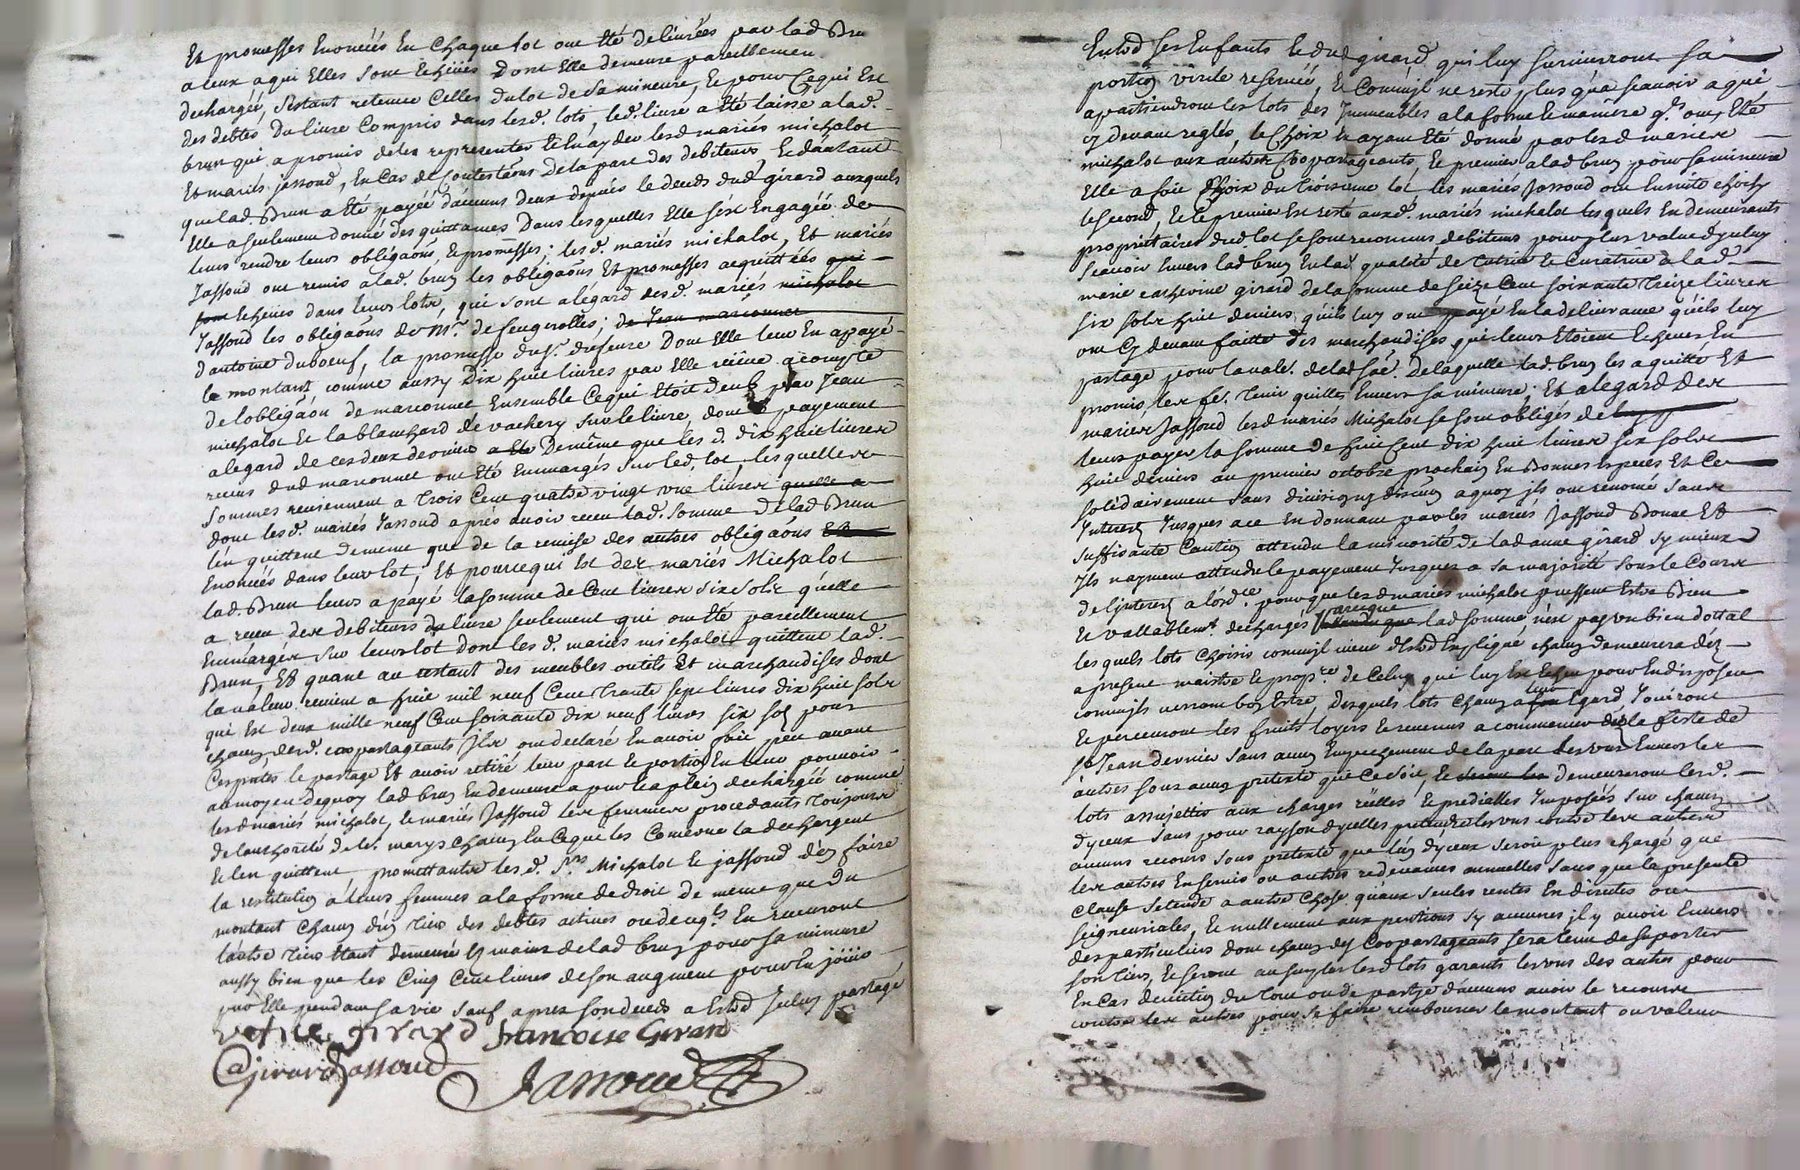 Et promesses Enoncées En Chaque lot ont Eté delivrées par lad Brun
a ceux a qui Elles sont Echües Dont Elle demeure pareillement
dechargée, s'estant retenue Celles du lot de sa mineure, Et pour Cequi Est
des debtes Du livre Compris dans lesd. lots, led. livre a Eté laissé a lad.
brun qui a promis de les representer Et en ayder lesd mariés michalot
Et mariés jassoud, En Cas de Contestãons de la part des debiteurs, Et d'autant
que lad. Brun a Eté payée d'aucuns deux depuis le deceds dud girard auxquels
Elle a seulement donné des quittances Dans lesquelles Elle s'est Engagée de
leurs rendre leurs obligãons, Et promesses; lesd. mariés michalot, Et mariés
Jassoud ont remis a lad. brun les obligãons Et promesses acquittées qui
sont Echües dans leurs lots, qui sont a légard desd. mariés michalot
Jassoud les obligãons de Mr. de feugerolles; de Jean marconnet
d'antoine duboeuf, la promesse du sr. Dont Elle leur En a payé
le montant, comme aussy Dix huit livres par Elle reçüe a compte
de l'obligãon de marconnet Ensemble Cequi Etoit deub par Jean
michalot Et la blanchard de vachery sur le livre, dont payement
a legard de ces deux derniers a Eté De même que lesd. dix huit livres
receus dud marconnet ont Eté Emmargés sur led. lot, lesquelles
sommes reviennent a Trois Cent quatre vingt une livres quelle a
dont lesd. mariés Jassoud apres avoir receu lad. somme de lad Brun
l'en quittent de meme que de la remise des autres obligãons Et
Enoncées dans leur lot, Et pource qui Est des mariés Michalot
lad. Brun leurs a payé la somme de Cent livres dix sols qu'elle
a receu des debiteurs du livre seulement qui ont Eté pareillement
Emmargés sur leurs lot dont les d. mariés michalot quittent lad.
Brun, Et quant au restant des meubles outils Et marchandises dont
la valeur revient a huit mil neuf Cent Trante sept livres dix huit sols
qui Est deux mille neuf Cent soixante dix neuf livres six sols pour
chacun desd. coopartageants Ils ont declaré En avoir fait peu avant
Ces pntes le partage Et avoir retiré leur part Et portion En leur pouvoir
au moyen dequoy lad brun En demeure a pur Et a plein dechargée comme
lesd mariés michalot, Et mariés Jassoud les femmes procedants Toujours
de l'authorité de lrs. marys chacun En Ceque les Concerne la dechargent
Et l'en quittent, promettants lesd. Srs. Michalot Et jassoud d'en faire
la restitution a leurs femmes a la forme de droit de meme que du
montant chacun d'un tiers des debtes actives En recevront
l'autre tiers Etant demeuré Es mains de lad brun pour sa mineure
aussy bien que les Cinq Cent livres de son augment pour En joüir
par Elle pendant sa vie sauf apres son deceds a Estre Icelluy partagé
girard francoise Girard
Girard Jassoud
Jassoud
Entre ses Enfants Et dud girard, qui luy survivront sa
portion virile reservée, Et Comme il ne reste plus qu'a sçavoir a qui
apartiendront les lots des Immeubles a la forme Et maniere qu'ils ont Eté
cy devant reglés, le Choix En ayant Eté donné par lesd mariés
michalot aux autres Coopartageants, Et premier a lad brun pour sa mineure
Elle a fait Choix du Troisieme lot les mariés Jassoud ont Ensuite choisy
le second, Et le premier Est resté auxd. mariés michalot lesquels En demeurants
proprietaires dud lot se sont reconnus debiteurs pour plus value d'jceluy
scavoir Envers lad brun En lad qualité de tutrice Et Curatrice a lad.
marie catherine girard de la somme de seize Cent soixante Treize livres
six sols huit deniers, qu'ils luy ont payé En la delivrance qu'ils luy
ont Cy devant faitte des marchandises qui leurs Etoient Echeues En
partage pour la vale. de lad sôe. de laquelle lad. brun les a quitté Et
promis les fe. tenir quittes Envers sa mineure; Et a legard des
maries Jassoud lesd mariés Michalot se sont obligés de
leurs payer la somme De huit Cent dix huit livres six sols
huit deniers au premier octobre prochain En bonnes especes Et Ce
solidairement sans division ny discution a quoy ils ont renoncé sans
Interest Jusques a ce En donnant par les mariés Jassoud Bonne Et
suffisante Caution attendu la minorité de lad anne girard sy mieux
Ils n'ayment attendre le payement Jusques a sa majorité sous le Cours
de l'interest a l'ordce. pour que lesd mariés michalot puissent Estre Bien
Et vallablemt. dechargés parceque lad somme n'est pas un bien dottal
lesquels lots choisis comme il vient d'Estre Expliqué chacun demeurera des
a present maistre Et propre. de Celuy que luy Est Echeu pour En disposer
comme ils verront bon Estre, desquels lots chacun a leur Egard Joüiront
Et percevront les fruits loyers Et revenus a commencer des la feste de
St Jean dernier sans aucun Empechement de la part les uns Envers les
autres sous aucun pretexte que Ce soit, Et demeureront lesd.
lots assujettis aux charges réelles Et predialles Imposées sur chacun
d'yceux sans pour rayson d'ycelles pretendre les uns contre les autres
aucuns recours sous pretexte que l'un d'yceux seroit plus chargé que
les autres En servis ou autres redevances annuelles sans que la presente
clause s'etende a autre chose qu'aux seules rentes En directes ou
seigneuriales, Et nullement aux pentions sy aucunes jl y avoit Envers
des particuliers dont chacun des Coopartageants sera tenu de suporter
son tiers, Et seront au surplus lesd lots garants les uns des autres pour
En cas d'eviction du Tout ou de partye d'aucuns avoir le recours
contre les autres pour se faire rembourser le montant ou valeur